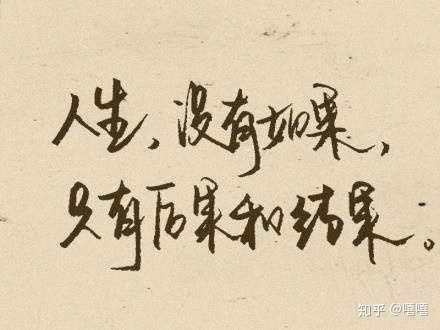 人生，没有如果，
只有后果和结果。
知乎 @嘻嘻